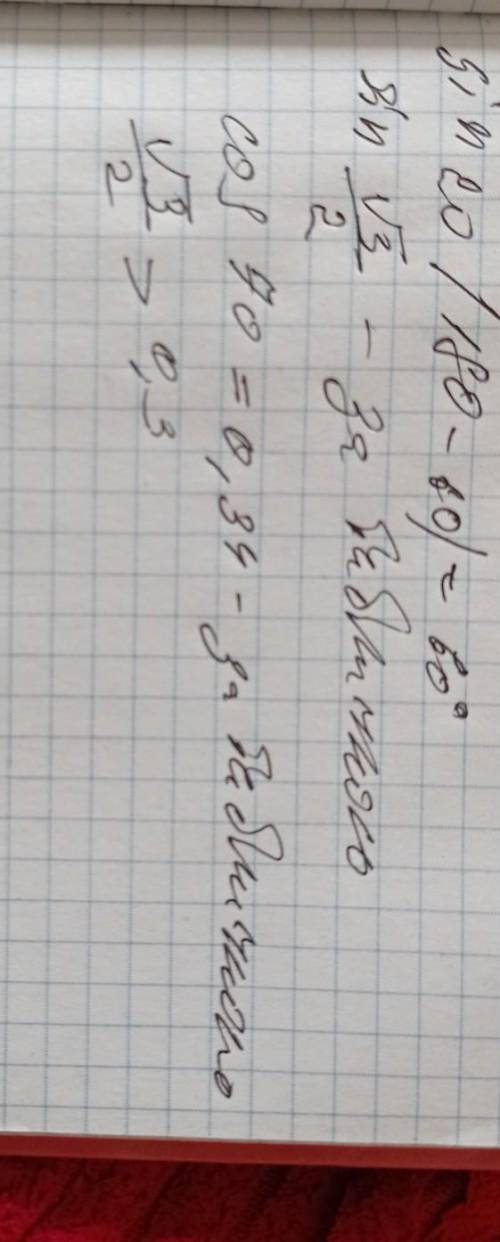 sin 20 /180 - 60/ = 60°
sin √3/2 - за таблицею
cos 70 = 0,34 - за таблицею
√3/2 > 0,3